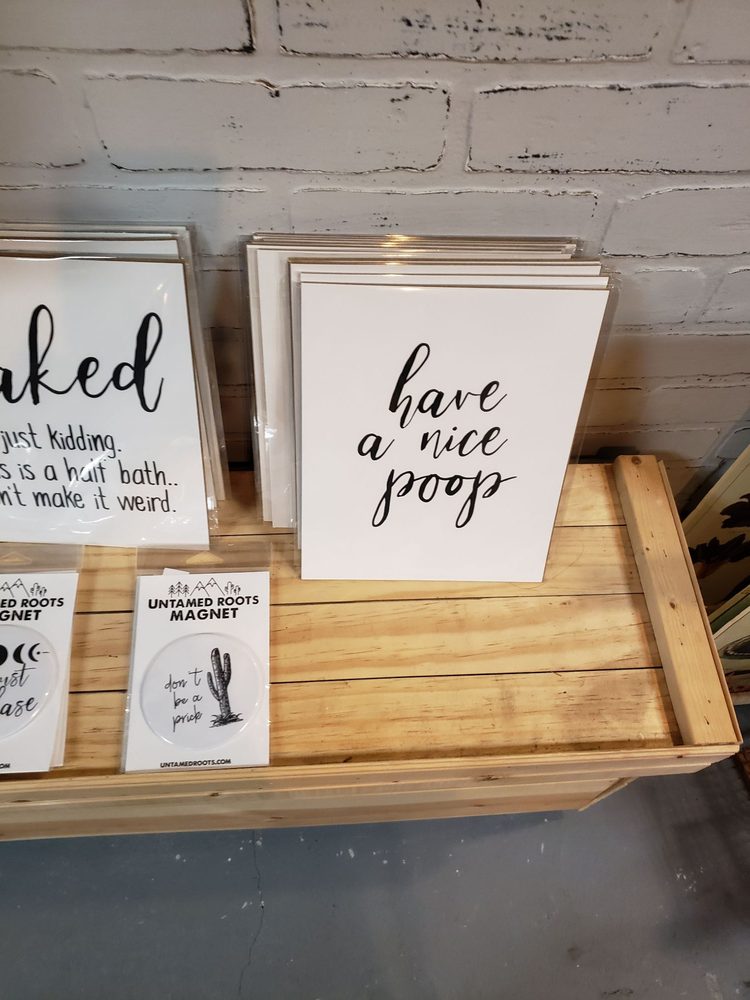 aked
just kidding.
s is a half bath..
n't make it weird.
have
a nice
poop
ED ROOTS
GNET
yst
ase
OM
UNTAMED ROOTS
MAGNET
don't
be a
prick
UNTAMEDROOTS.COM